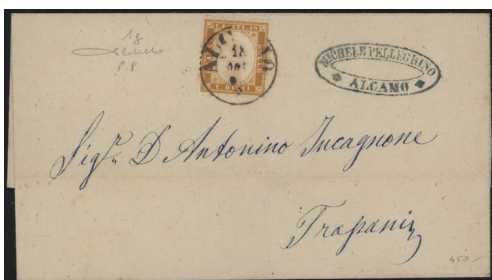 18
P. 8
ALCAMO
18
MICHELE PELLEGRINO
ALCAMO
Sigr. D Antonino Incagnone
Trapani
450